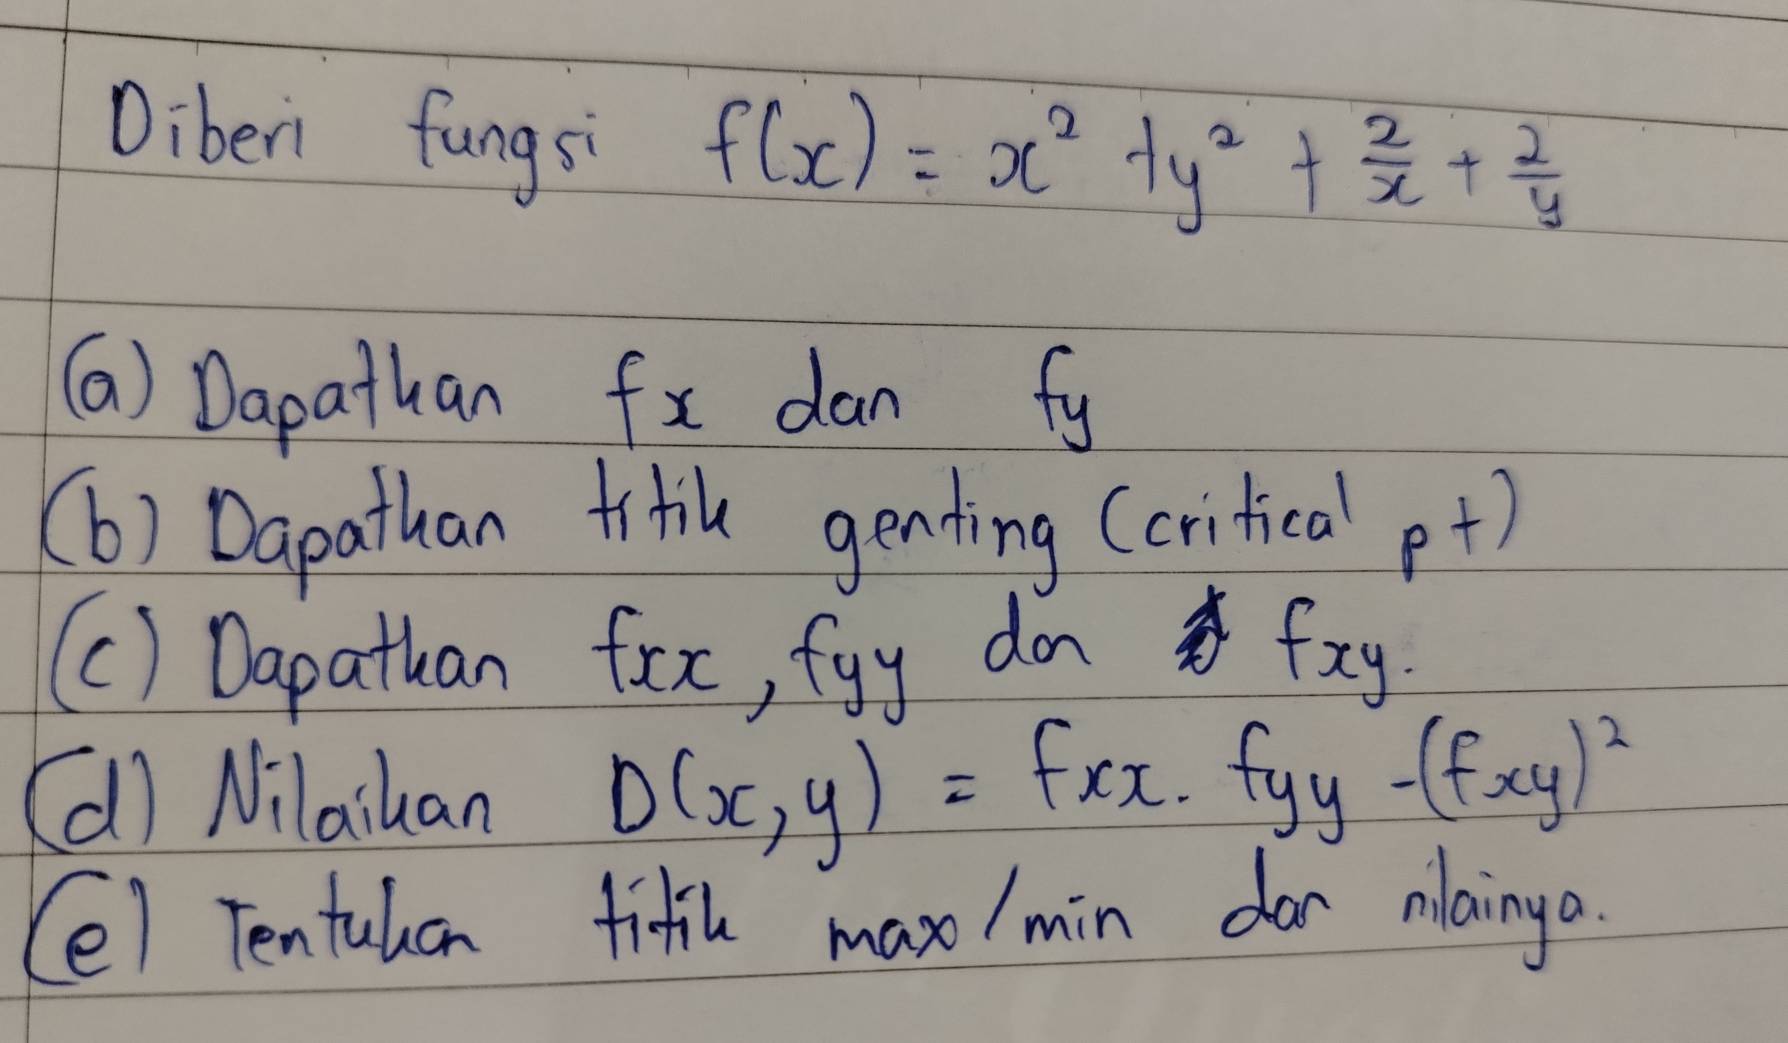 Diberi fungsi f(x) = x² + y² + 2/x + 2/y
(a) Dapatkan fx dan fy
(b) Dapatkan titik genting (critical pt)
(c) Dapatkan fxx, fyy dan fxy.
(d) Nilaikan D(x,y) = fxx. fyy -(fxy)²
(e) Tentukan titik max/min dan nilainya.